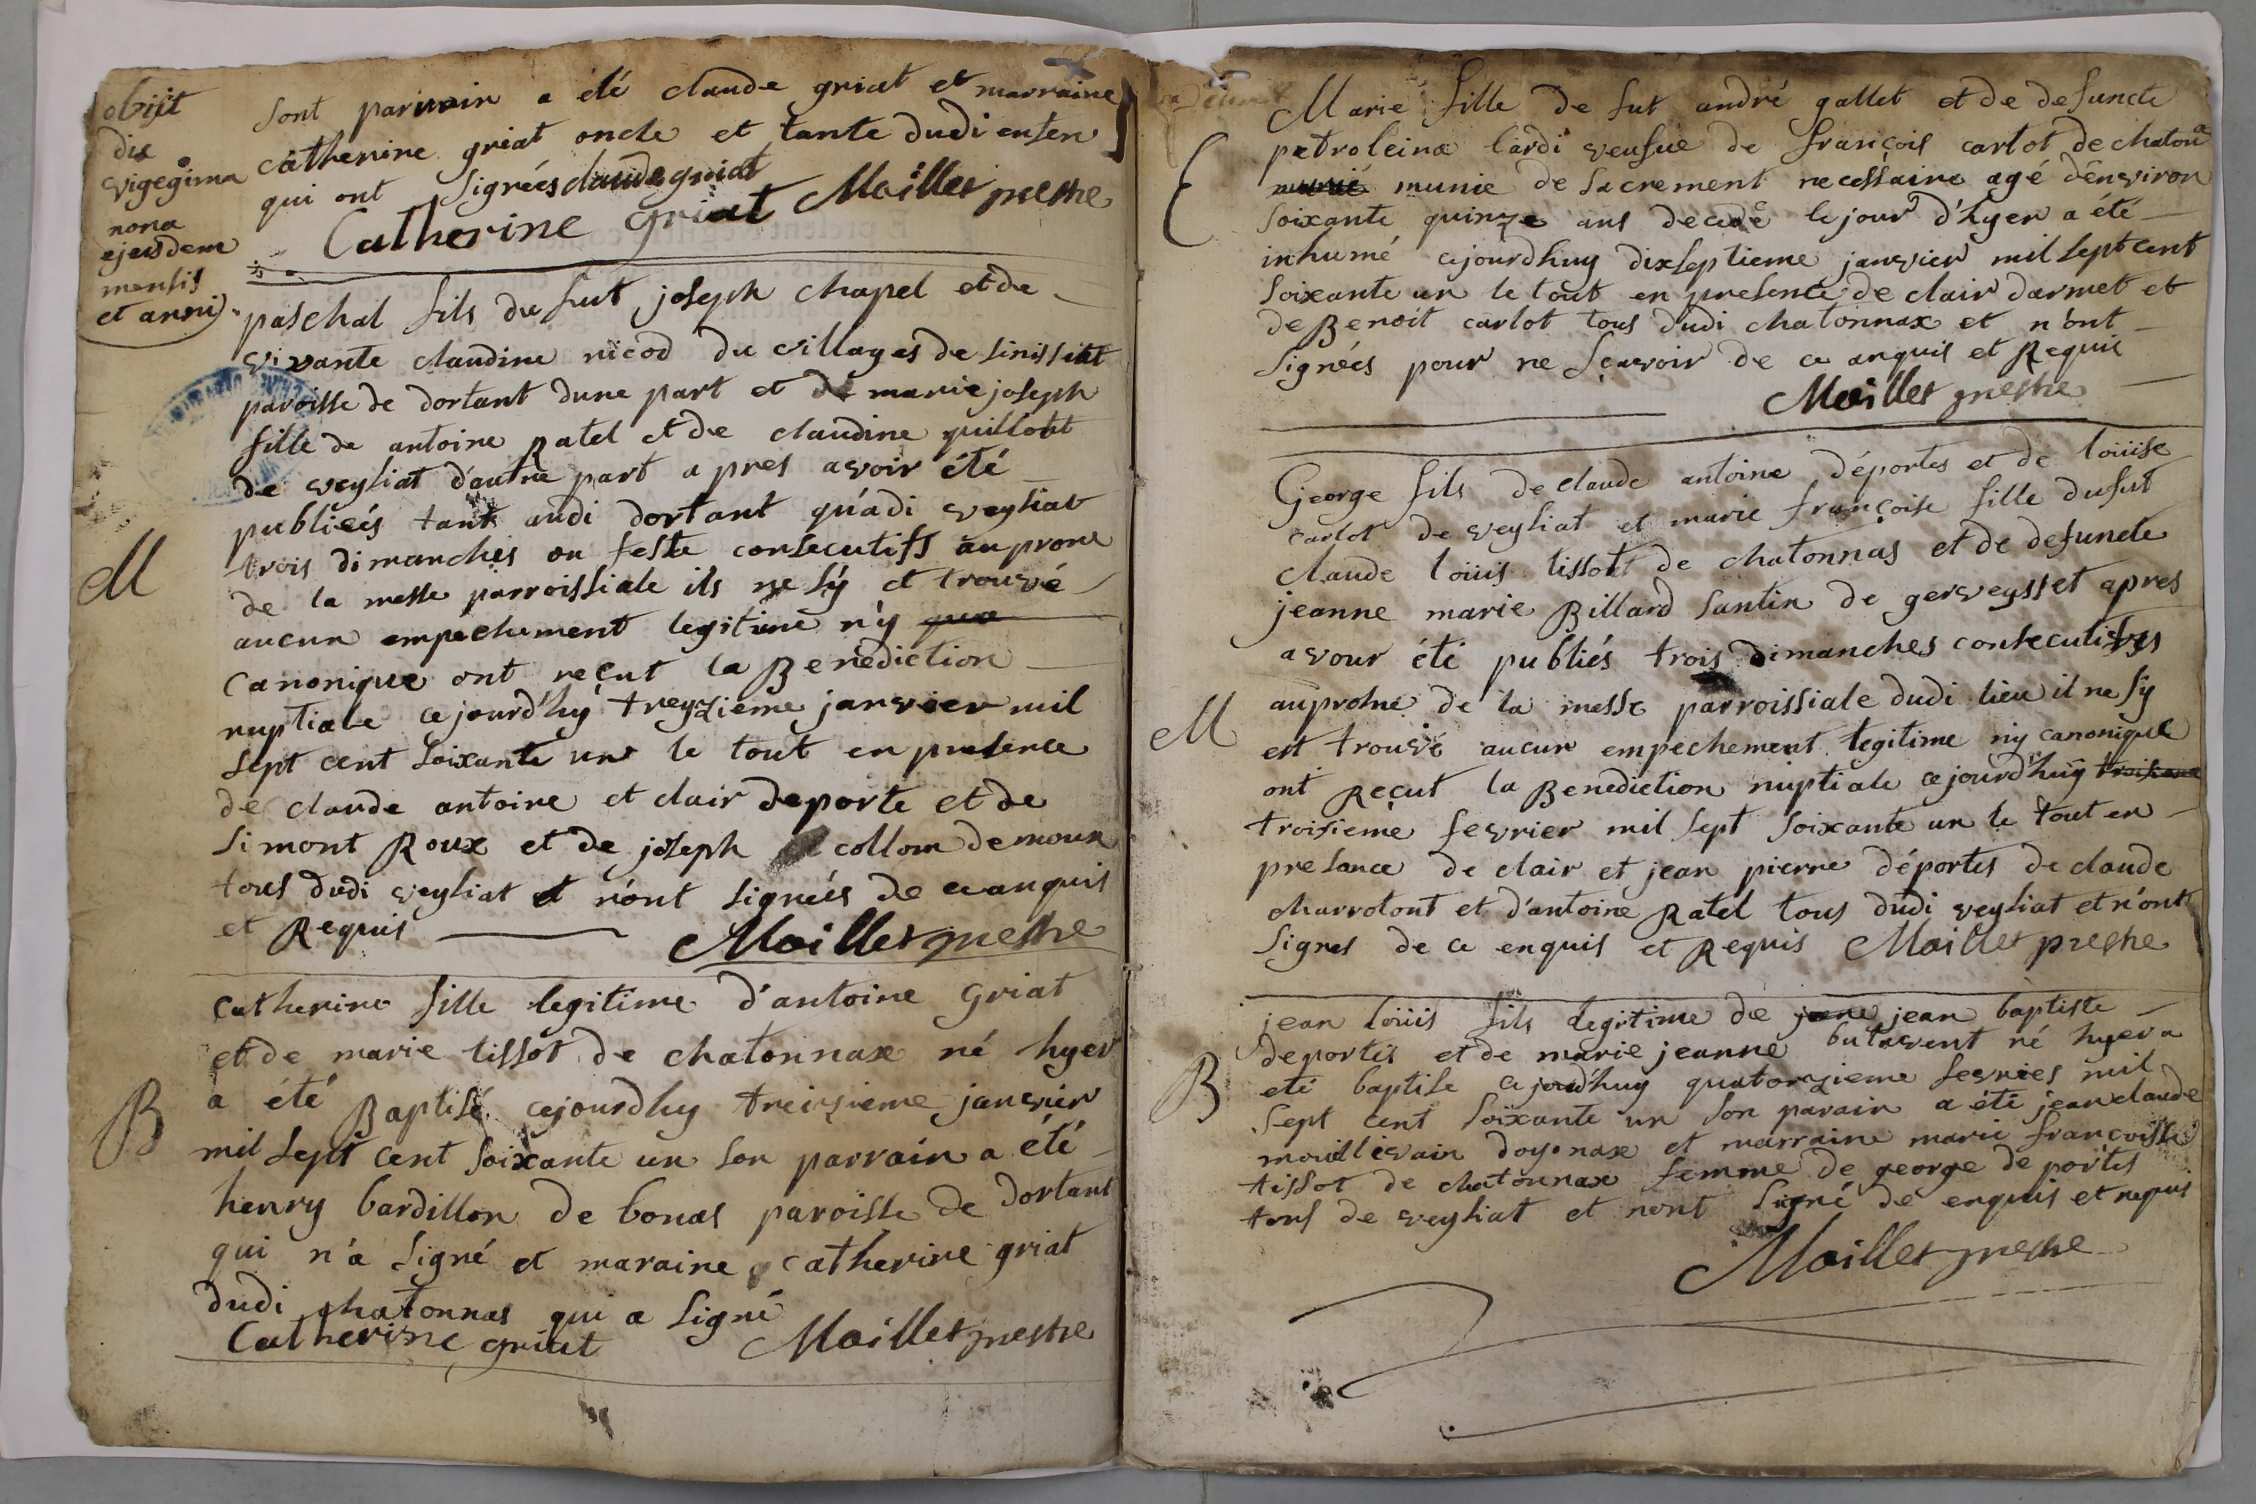 obijt
die
vigegima
nona
ejusdem
mensis
et anni
sont parrain a été claude griat et marraine
catherine griat oncle et tante dudi enfen
qui ont signées claude griat
Catherine griat Maillet prestre
paschal fils du fut joseph chapel et de
vivante claudine nicod du villages de sinissiat
paroisse de dortant dune part et de marie joseph
fille de antoine Ratel et de claudine guillont
de veyliat d'autre part apres avoir été
publieés tant audi dortant qu'adi veyliat
M
trois dimanches ou feste consecutifs au prone
de la messe parroissiale ils ne sÿ et trouvé
aucun empechement legitime n'ÿ
Canonique ont reçut la Benediction
nuptiale cejourd'hÿ treyzieme janvier mil
sept cent soixante un le tout en presence
de claude antoine et clair deporte et de
simont Roux et de joseph collom demour
tous dudi veyliat et n'ont signées de ce anquis
et Requis Maillet prestre
catherine fille legitime d'antoine Griat
et de marie tissot de chatonnax né hyer
B
a été Baptisé cejourdhy treizieme janvier
mil sept cent soixante un son parrain a été
henry bardillon de bonas paroisse de dortant
qui n'a signé et maraine catherine griat
dudi chatonnas qui a signé
Catherine griat Maillet prestre
Marie fille de fut andré gallet et de defuncte
E
petroleina lardi veufue de françois carlot de chatona
munie munie de sacrement necessaire agé d'environ
soixante quinze ans decedé le jour d'hyer a été
inhumé cejourdhuy dixseptieme janvier mil sept cent
soixante un le tout en presence de clair darmet et
de Benoit carlot tous dudi chatonnax et n'ont
signées pour ne sçavoir de ce anquis et Requis
Maillet prestre
George fils de claude antoine déportes et de loüise
carlot de veyliat et marie françoise fille du fut
claude loüis tissott de chatonnas et de defuncte
jeanne marie Billard santin de gerveysset apres
avour été publiés trois dimanches consecutifves
M
auprosne de la messe parroissiale dudi lieu il ne sÿ
est trouvé aucun empechement legitime nÿ canonique
ont Reçut la Benediction nuptiale cejourd'huÿ troisieme
troisieme fevrier mil sept soixante un le tout en
presance de clair et jean pierre déportes de claude
charrotont et d'antoine Ratel tous dudi veyliat et n'ont
signes de ce enquis et Requis Maillet prestre
jean loüis fils legitime de jean baptiste
deportes et de marie jeanne butavent né hyer a
B
eté baptise cejourd'huy quatorzieme fevries mil
sept cent soixante un son parain a été jean claude
mouillevain doyonax et marraine marie françoisse
tissot de chatonnax femme de george deportes
tous de veyliat et nont signé de enquis et requis
Maillet prestre